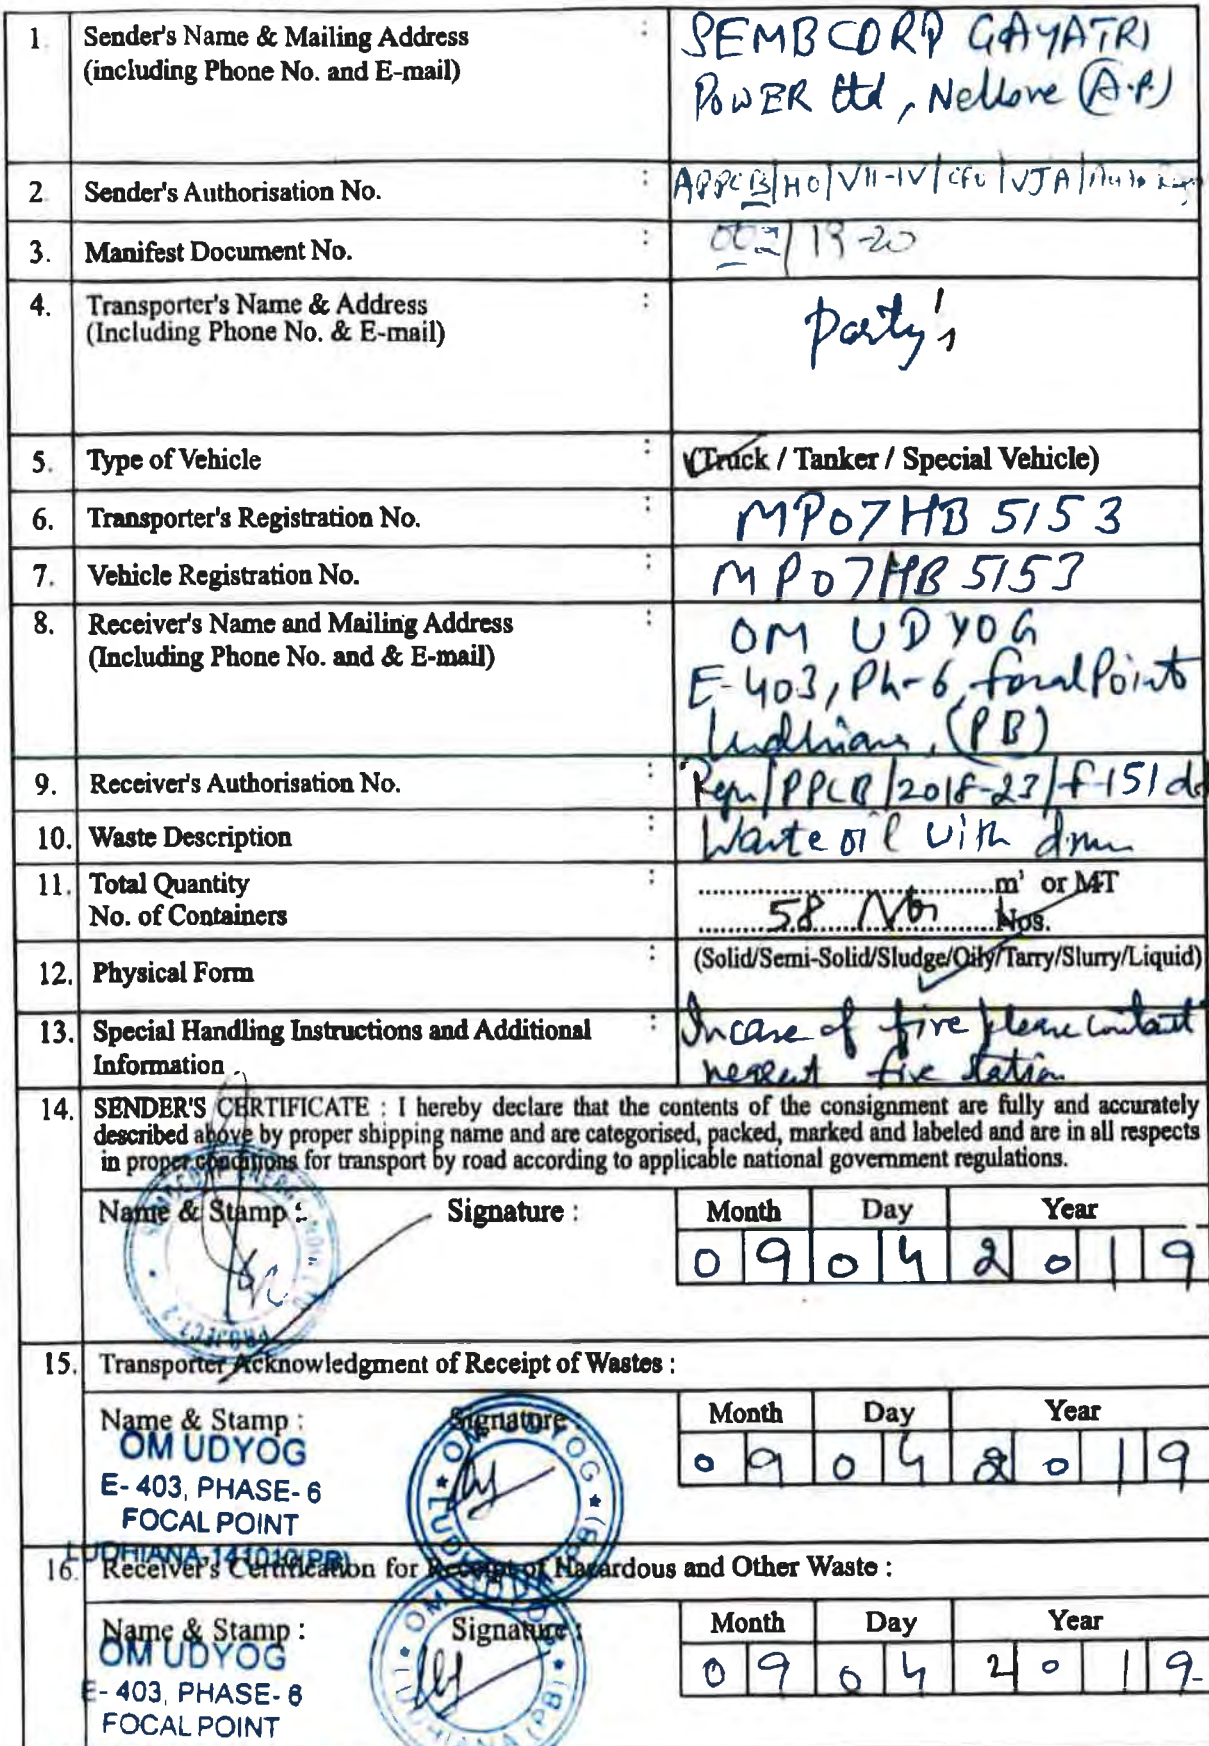 1. Sender's Name & Mailing Address : SEMBCORP GAYATRI
(including Phone No. and E-mail) POWER Ltd, Nellore (A.P)
2. Sender's Authorisation No. : APPCB/HO/VII-IV/CFO/VJA/
3. Manifest Document No. : /19-20
4. Transporter's Name & Address : Party's
(Including Phone No. & E-mail)
5. Type of Vehicle : (Truck / Tanker / Special Vehicle)
6. Transporter's Registration No. : MP07HB 5153
7. Vehicle Registration No. : MP07HB 5153
8. Receiver's Name and Mailing Address : OM UDYOG
(Including Phone No. and & E-mail) E-403, Ph-6, focal Point
Ludhiana, (PB)
9. Receiver's Authorisation No. : /PPCB/2018-23/f-151
10. Waste Description : Waste oil with drum
11. Total Quantity : m³ or MT
No. of Containers 58 Nos.
12. Physical Form : (Solid/Semi-Solid/Sludge/Oily/Tarry/Slurry/Liquid)
13. Special Handling Instructions and Additional : In case of fire please contact
Information fire station
14. SENDER'S CERTIFICATE : I hereby declare that the contents of the consignment are fully and accurately
described above by proper shipping name and are categorised, packed, marked and labeled and are in all respects
in proper conditions for transport by road according to applicable national government regulations.
Name & Stamp : Signature : Month Day Year
0 9 0 4 2 0 1 9
PROJECT-2
15. Transporter Acknowledgment of Receipt of Wastes :
Name & Stamp : Signature : Month Day Year
OM UDYOG 0 9 0 4 2 0 1 9
E- 403, PHASE- 6
FOCAL POINT
LUDHIANA-141010(PB)
OM UDYOG * LUDHIANA (PB) *
16. Receiver's Certification for Receipt of Hazardous and Other Waste :
Name & Stamp : Signature : Month Day Year
OM UDYOG 0 9 0 4 2 0 1 9
E- 403, PHASE- 6
FOCAL POINT
OM UDYOG * LUDHIANA (PB) *